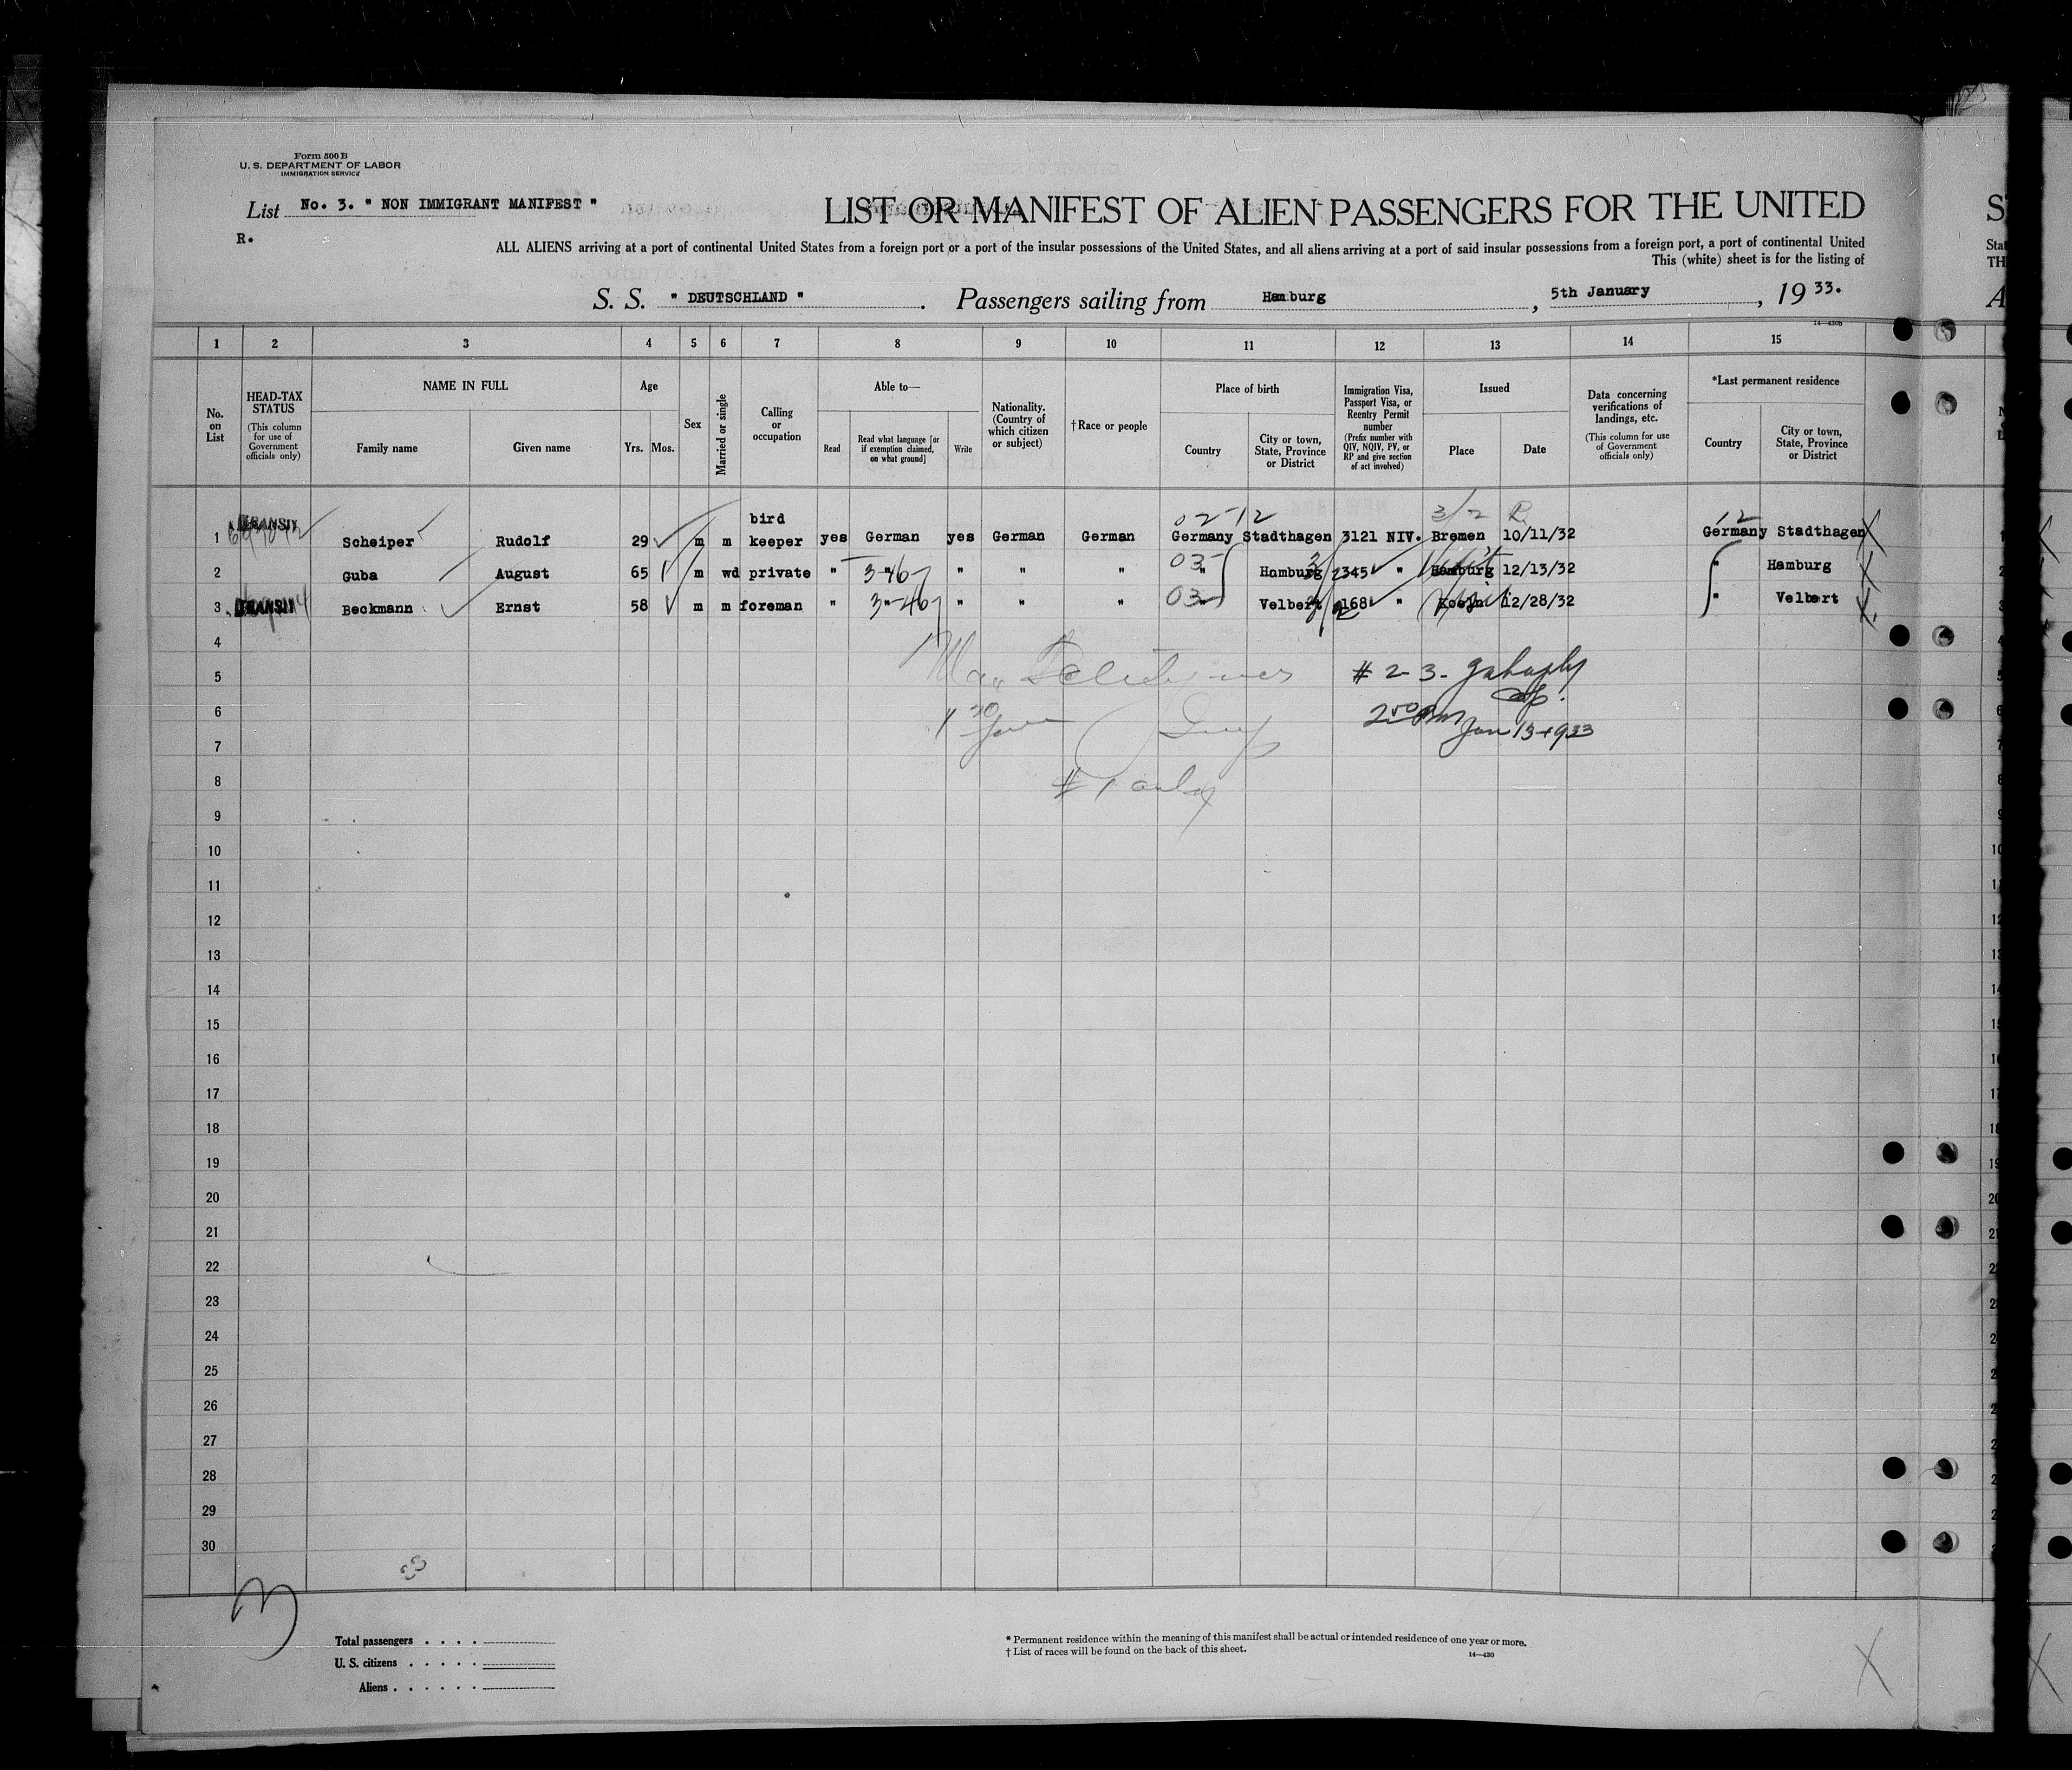 Form 500 B
U. S. DEPARTMENT OF LABOR
IMMIGRATION SERVICE
List No. 3. " NON IMMIGRANT MANIFEST "
R.
LIST OR MANIFEST OF ALIEN PASSENGERS FOR THE UNITED
ALL ALIENS arriving at a port of continental United States from a foreign port or a port of the insular possessions of the United States, and all aliens arriving at a port of said insular possessions from a foreign port, a port of continental United
This (white) sheet is for the listing of
S. S. " DEUTSCHLAND " . Passengers sailing from Hamburg , 5th January , 19 33.
14—430B
1 2 3 4 5 6 7 8 9 10 11 12 13 14 15
No. on List
HEAD-TAX STATUS
(This column for use of Government officials only)
NAME IN FULL
Family name Given name
Age
Yrs. Mos.
Sex
Married or single
Calling or occupation
Able to—
Read
Read what language [or if exemption claimed, on what ground]
Write
Nationality. (Country of which citizen or subject)
†Race or people
Place of birth
Country
City or town, State, Province or District
Immigration Visa, Passport Visa, or Reentry Permit number
(Prefix number with QIV, NQIV, PV, or RP and give section of act involved)
Issued
Place Date
Data concerning verifications of landings, etc.
(This column for use of Government officials only)
*Last permanent residence
Country
City or town, State, Province or District
02-12 3/2 12
1 TRANSIT Scheiper Rudolf 29 m m bird keeper yes German yes German German Germany Stadthagen 3121 NIV. Bremen 10/11/32 Germany Stadthagen
2 Guba August 65 m wd private " 3-46 " " " 03 " Hamburg 2345 " Hamburg 12/13/32 " Hamburg
3 TRANSIT Beckmann Ernst 58 m m foreman " 3-46 " " " 03 " Velbert 168 " Koeln 12/28/32 " Velbert
4
5 # 2-3-
6
7 Jan 13-1933
8 # 1 only
9
10
11
12
13
14
15
16
17
18
19
20
21
22
23
24
25
26
27
28
29
30
3
Total passengers . . . .
U. S. citizens . . . . .
Aliens . . . . . .
* Permanent residence within the meaning of this manifest shall be actual or intended residence of one year or more.
† List of races will be found on the back of this sheet.
14—430